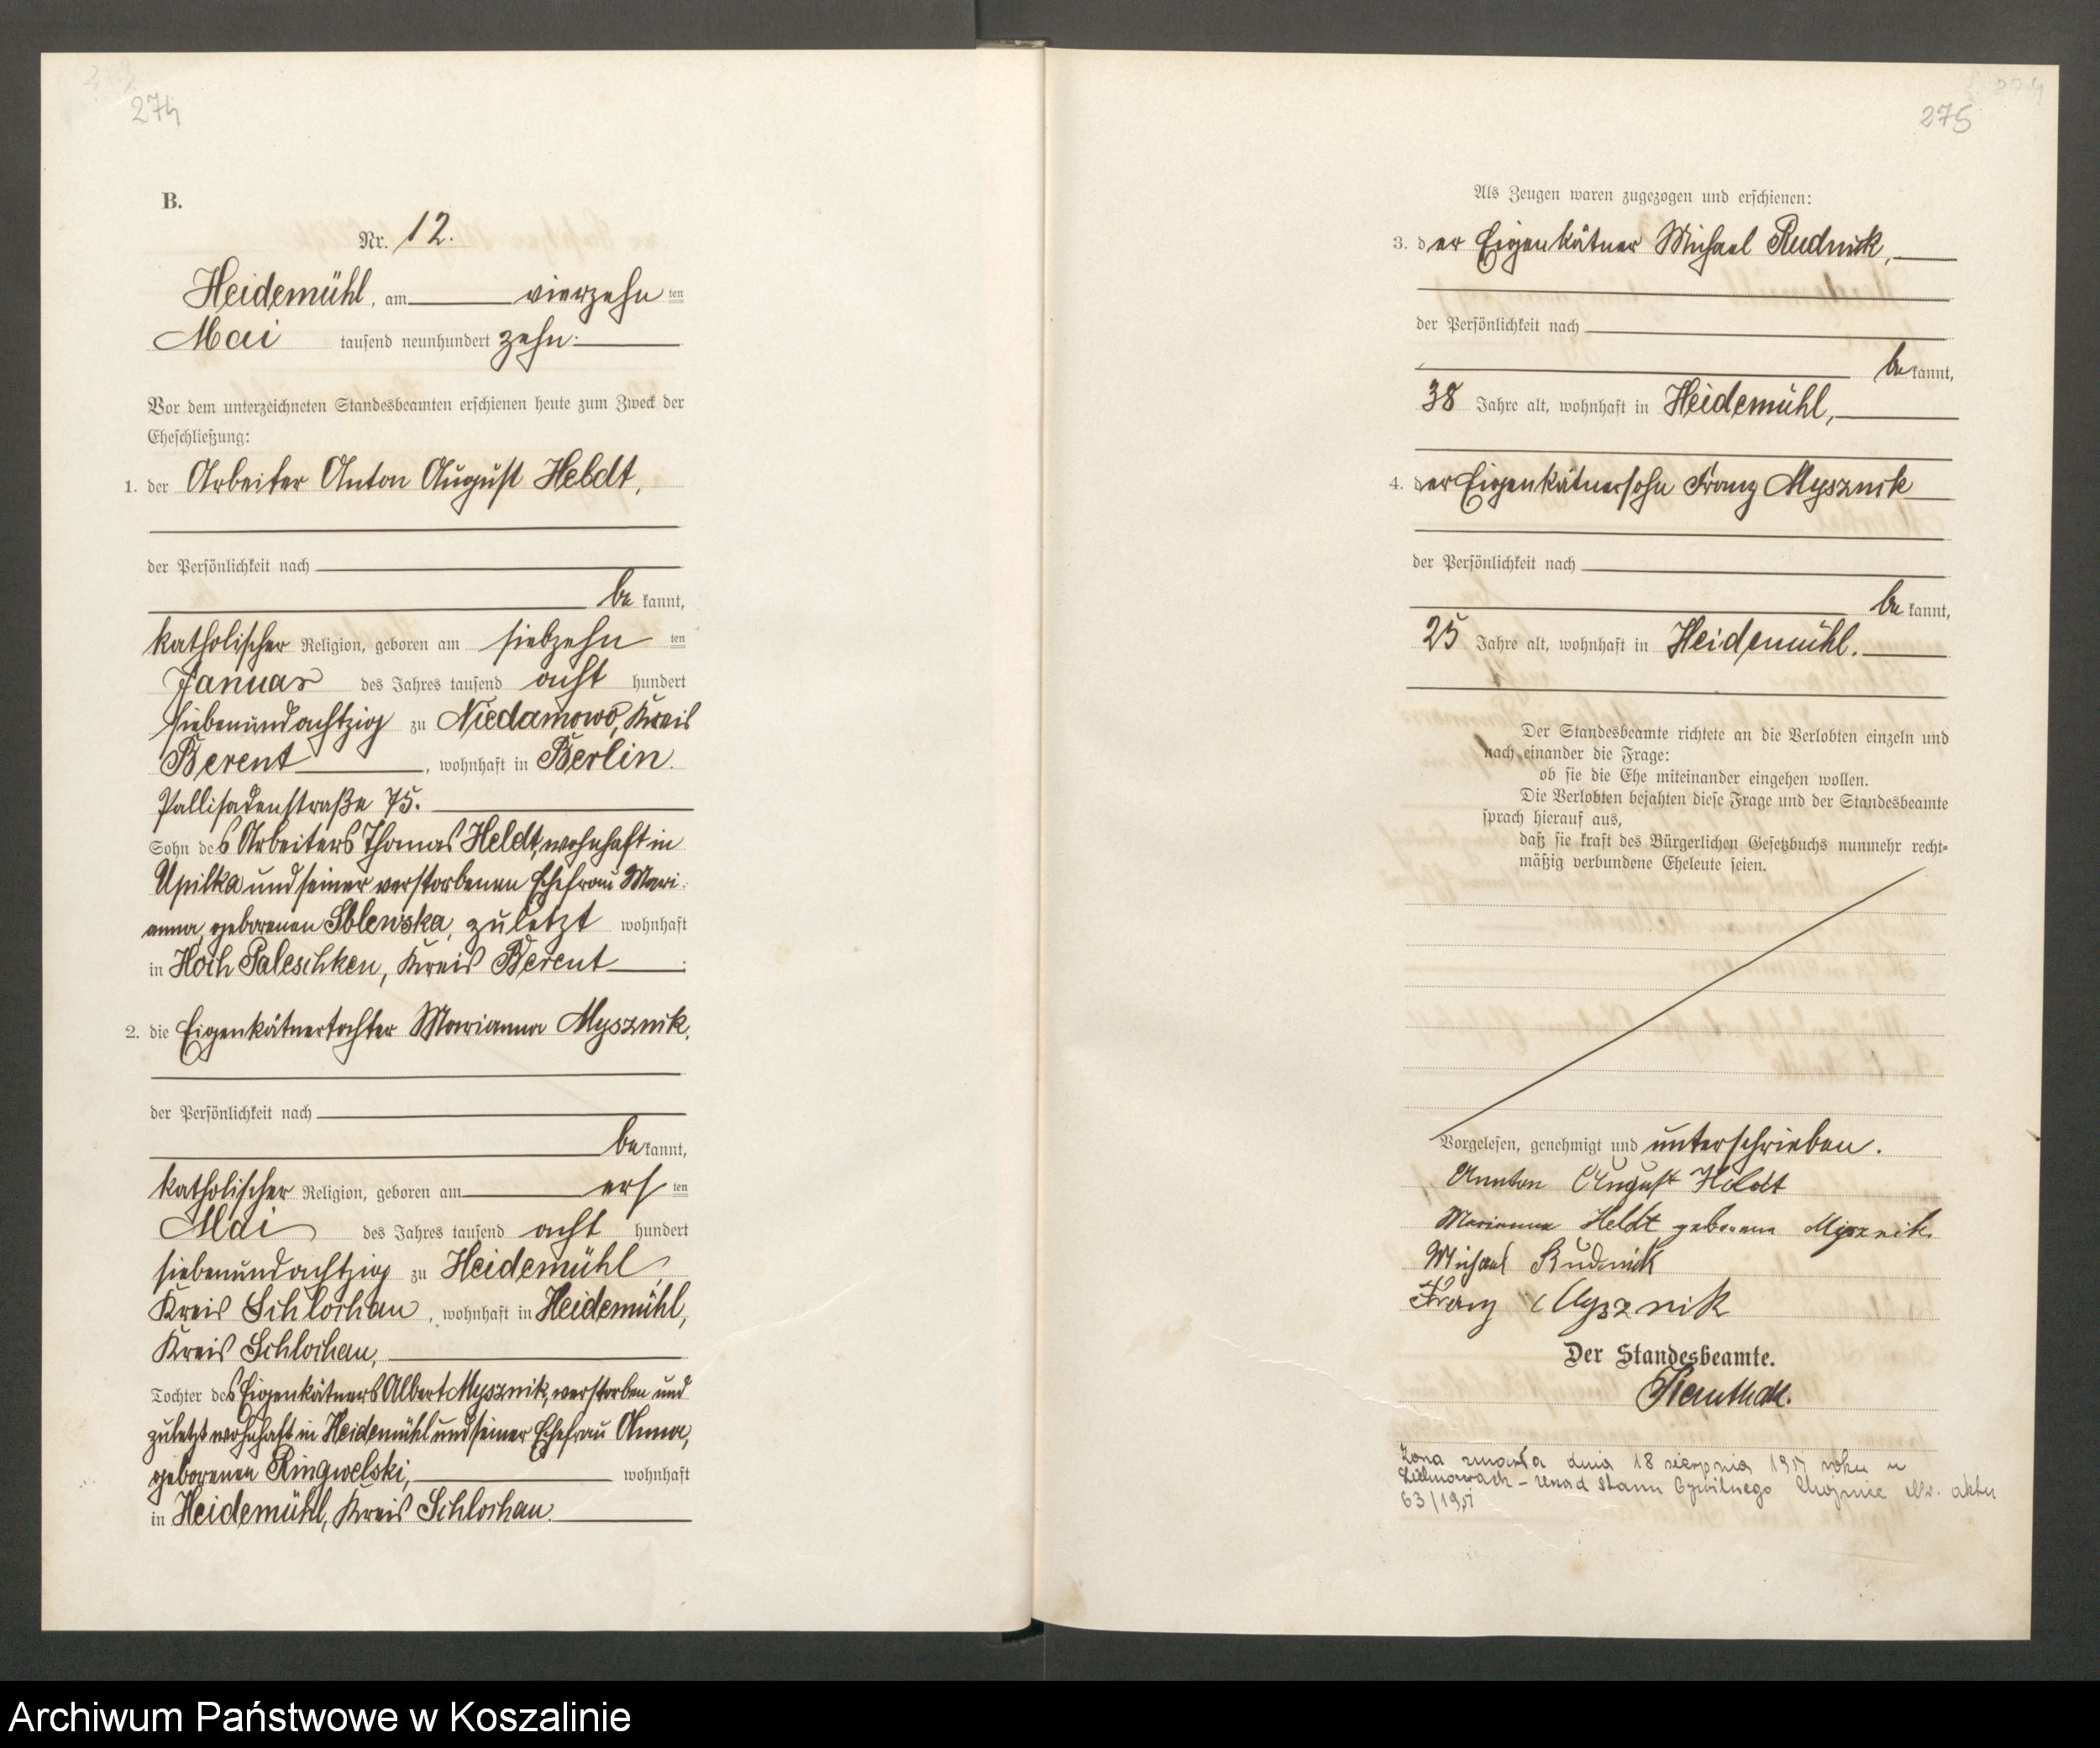 274
B.
Nr. 12.
Heidemühl, am vierzehn ten
Mai tausend neunhundert zehn.
Vor dem unterzeichneten Standesbeamten erschienen heute zum Zweck der
Eheschließung:
1. der Arbeiter Anton August Heldt,
der Persönlichkeit nach
be kannt,
katholischer Religion, geboren am siebzehn ten
Januar des Jahres tausend acht hundert
siebenundachtzig zu Niedamowo, Kreis
Berent, wohnhaft in Berlin.
Pallisadenstraße 75.
Sohn des Arbeiters Thomas Heldt, wohnhaft in
Upilka und seiner verstorbenen Ehefrau Mari-
anna, geborenen Sblewska, zuletzt wohnhaft
in Hoch Paleschken, Kreis Berent.
2. die Eigenkätnertochter Marianna Mysznik,
der Persönlichkeit nach
be kannt,
katholischer Religion, geboren am ers ten
Mai des Jahres tausend acht hundert
siebenundachtzig zu Heidemühl,
Kreis Schlochau, wohnhaft in Heidemühl,
Kreis Schlochau,
Tochter des Eigenkätners Albert Mysznik, verstorben und
zuletzt wohnhaft in Heidemühl und seiner Ehefrau Anna,
geborenen Ringwelski, wohnhaft
in Heidemühl, Kreis Schlochau.
275
Als Zeugen waren zugezogen und erschienen:
3. der Eigenkätner Michael Rudnik,
der Persönlichkeit nach
be kannt,
38 Jahre alt, wohnhaft in Heidemühl,
4. der Eigenkätnersohn Franz Mysznik
der Persönlichkeit nach
be kannt,
25 Jahre alt, wohnhaft in Heidemühl.
Der Standesbeamte richtete an die Verlobten einzeln und
nach einander die Frage:
ob sie die Ehe miteinander eingehen wollen.
Die Verlobten bejahten diese Frage und der Standesbeamte
sprach hierauf aus,
daß sie kraft des Bürgerlichen Gesetzbuchs nunmehr recht-
mäßig verbundene Eheleute seien.
Vorgelesen, genehmigt und unterschrieben.
Annton August Heldt
Marianna Heldt geborene Mysznik
Michael Rudnik
Franz Mysznik
Der Standesbeamte.
Żona zmarła dnia 18 sierpnia roku w
Urząd Stanu Cywilnego Chojnice Nr. aktu
Archiwum Państwowe w Koszalinie